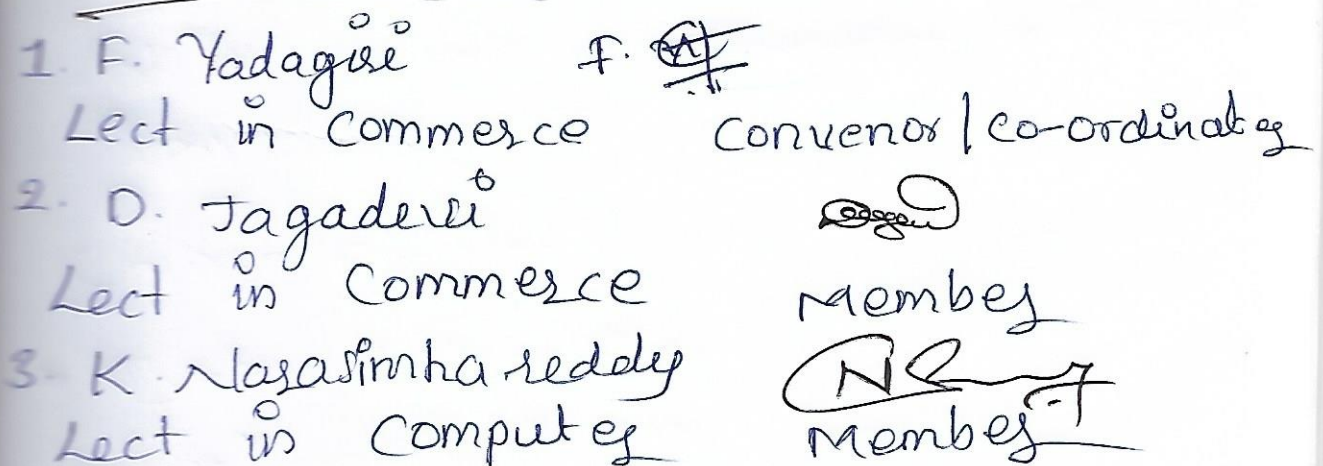 1. F. Yadagiri F.
Lect in Commerce Convenor | Co-ordinator
2. D. Jagadevi
Lect in Commerce Member
3. K. Narasimha reddy
Lect in Computer Member